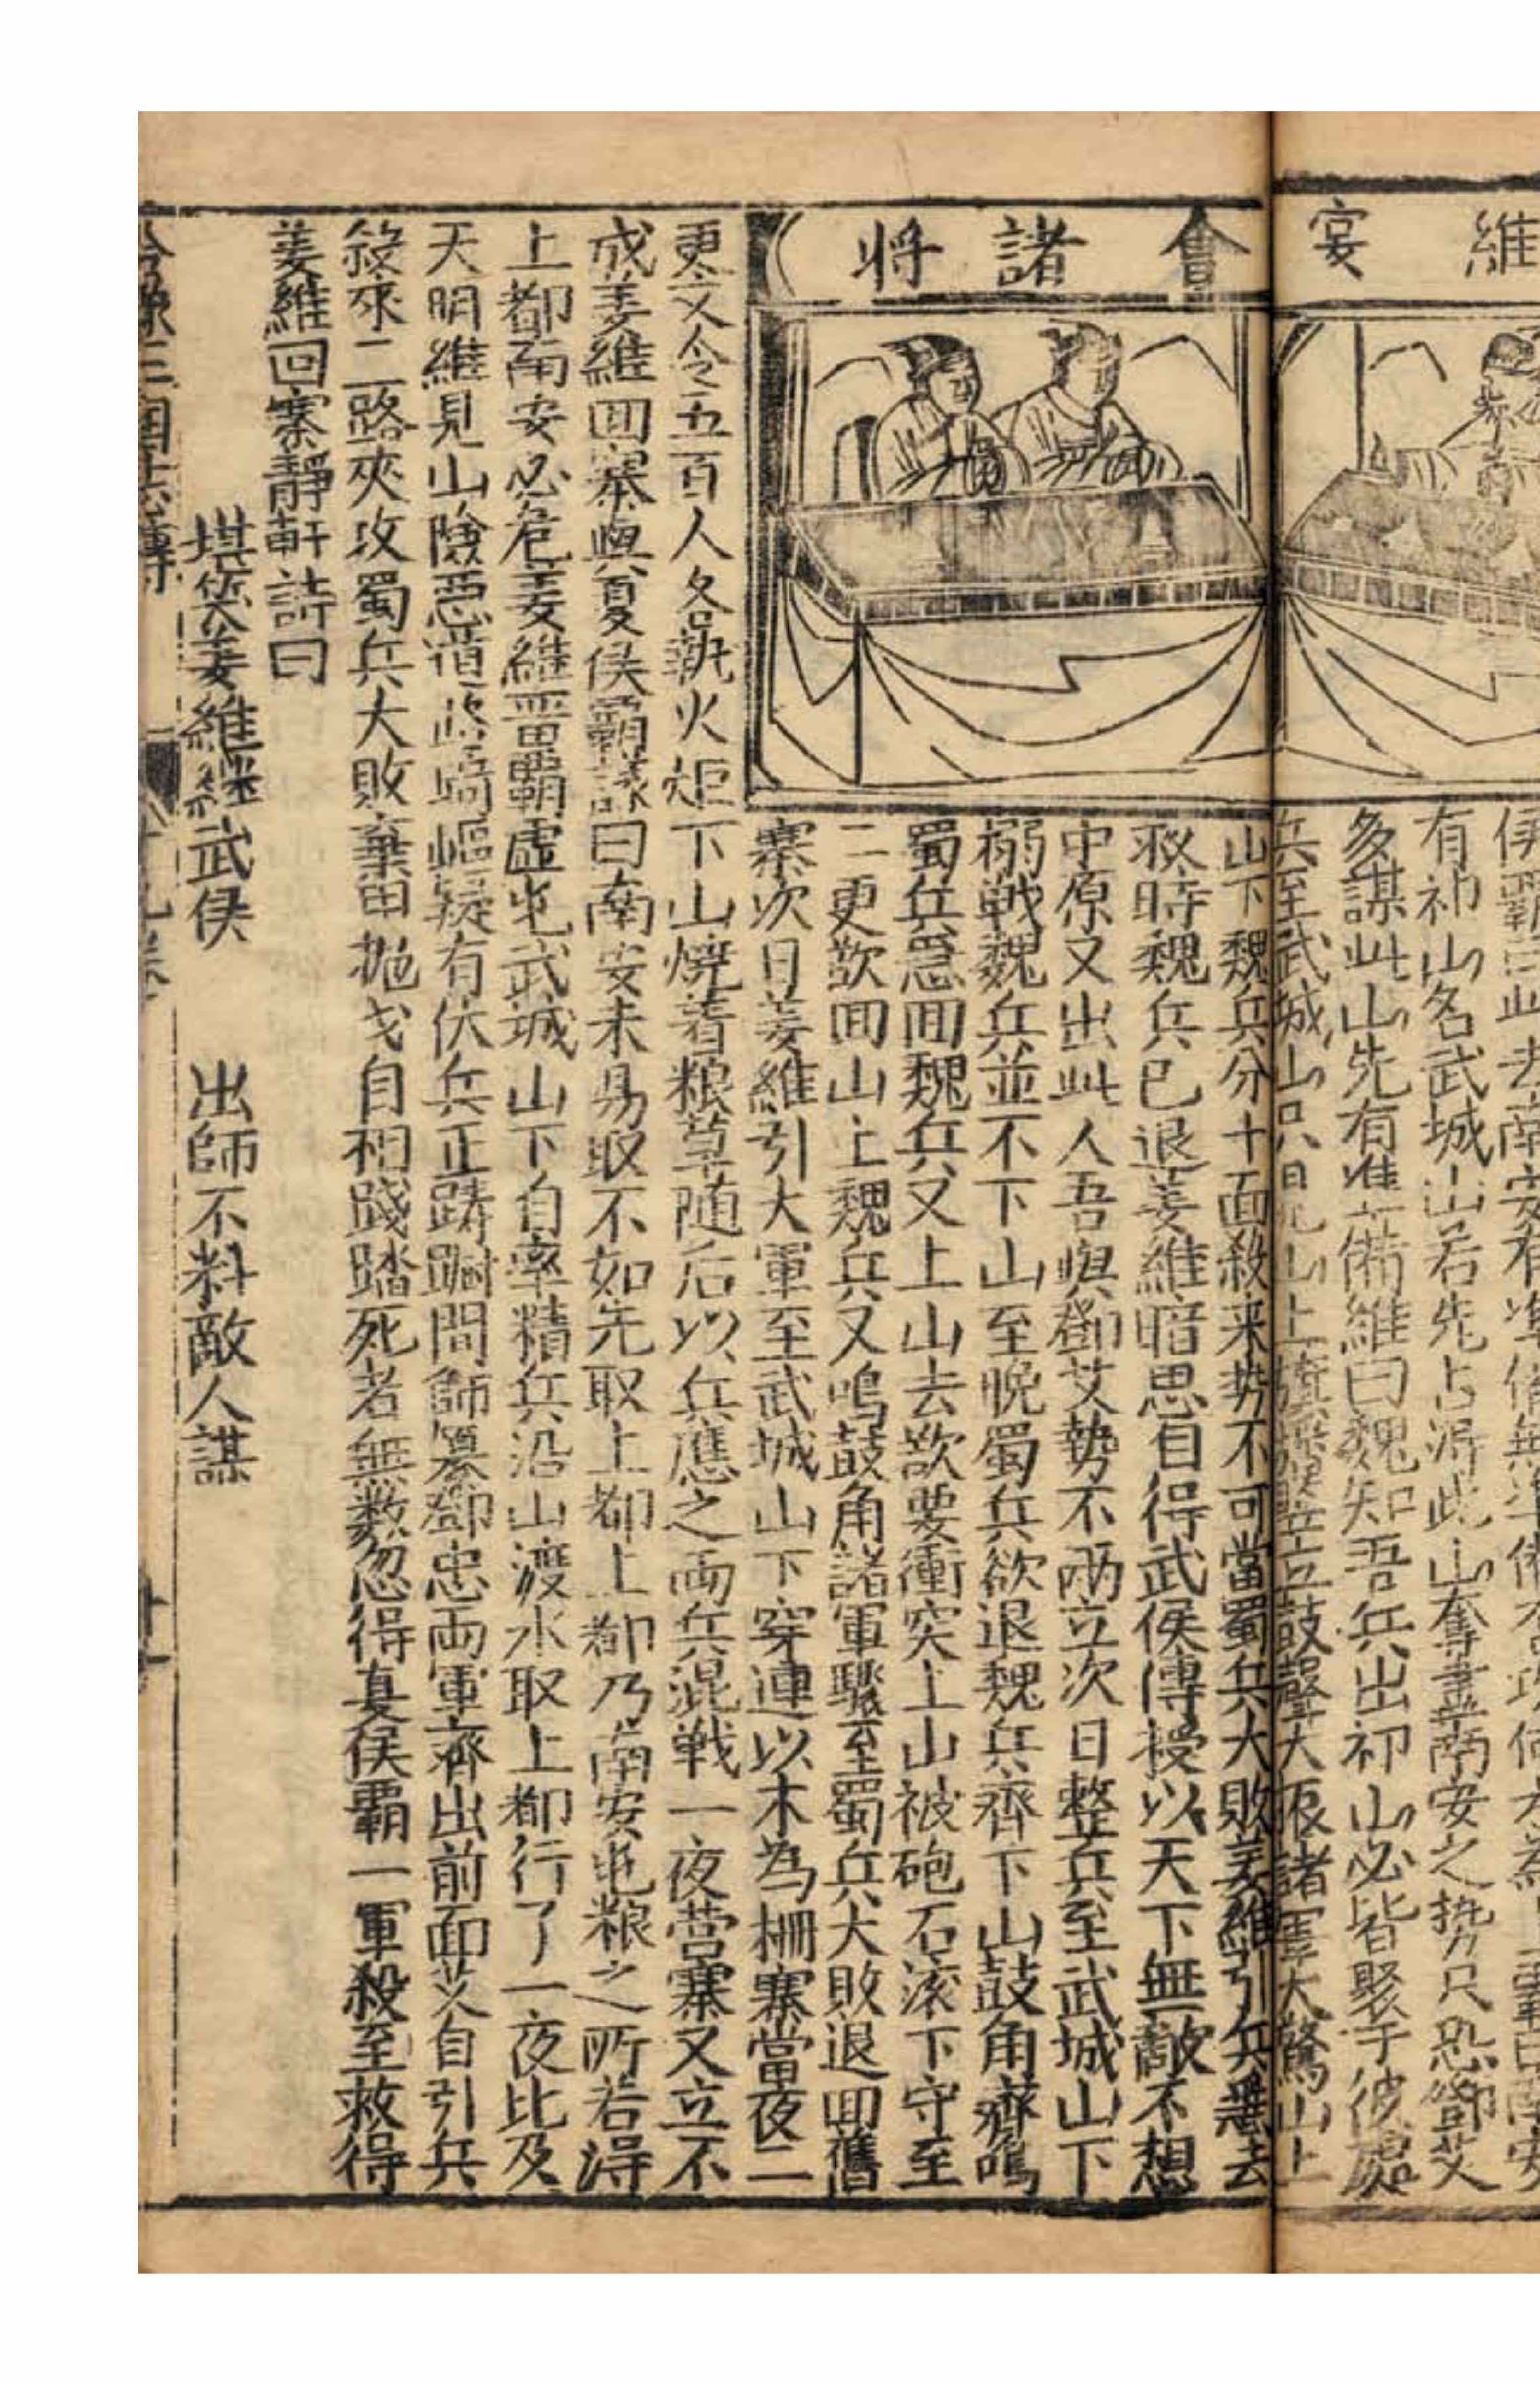 維 宴 會 諸 將
有祁山名武城山若先占得此山奪南安之势只恐鄧艾
多謀此山先有准備維曰魏知吾兵出祁山必皆聚于彼處
兵至武城山只見山上旗旛竪立鼓聲大振諸軍大驚山上
山下魏兵分十面殺来势不可當蜀兵大敗姜維引兵
救時魏兵已退姜維暗思自得武侯傳授以天下無敵不想
中原又出此人吾與鄧艾勢不兩立次日整兵至武城山下
搦戦魏兵並不下山至晚蜀兵欲退魏兵齊下山鼓角齊鳴
蜀兵急囬魏兵又上山去欲要衝突上山被砲石滚下守至
二更欲囬山上魏兵又鳴鼓角諸軍驟至蜀兵大敗退囬舊
寨次日姜維引大軍至武城山下穿連以木為柵寨當夜二
更艾令五百人各執火炬下山燒着粮草随后以兵應之両兵混戦一夜营寨又立不
成姜維囬寨與夏侯霸議曰南安未易取不如先取上都上都乃南安屯粮之所若得
上都南安必危姜維畱霸虚屯武城山下自率精兵沿山渡水取上都行了一夜比及
天明維見山險惡道路崎嶇疑有伏兵正躊躕間師纂鄧忠両軍齊出前面艾自引兵
殺來二路夾攻蜀兵大敗棄甲抛戈自相踐踏死者無数忽得夏侯霸一軍殺至救得
姜維回寨靜軒詩曰
堪笑姜維継武侯　出師不料敵人謀